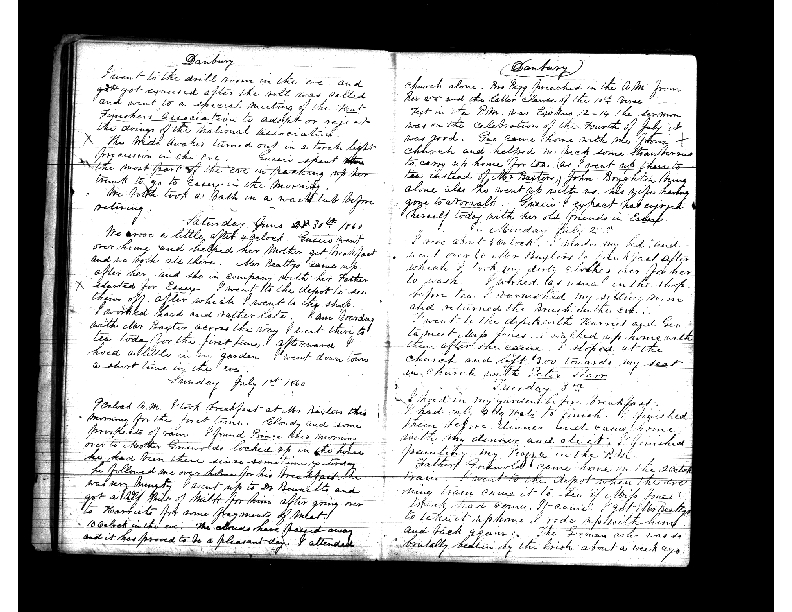 Danbury
I went to the drill room in the eve and
got excused after the roll was called
and went to a special meeting of the Hat
Finishers Association to adopt or reject
the doings of the National Association.
The Wide Awakes turned out in a torch light
procession in the eve. spent
the most part of the eve in packing up her
trunk to go to Essex in the morning.
We both took a bath in a wash tub before
retiring.
Saturday June 30th 1860
We arose a little after o'clock went
over home and helped her Mother get breakfast
and we both ate there. Mr came up
after her, and she in company with her Father
started for Essex. I went to the depot to see
them off, after which I went to the shop.
I worked hard and rather late. I am boarding
with Mr across the way I went there to
tea today for the first time, afterward I
hoed a little in our garden. I went down town
a short time in the eve
Sunday July 1st 1860
I took breakfast at Mr this
morning for the first time. Cloudy and some
sprinkles of rain. I found this morning
over to Mother Griswolds locked up in the house
he had been there since sometime yesterday
he followed me over home for his breakfast. He
was very hungry I went up to and
got a of Milk for him after going over
to for some fragments of Meat.
10 o'clock in the eve. The clouds have passed away
and it has proved to be a pleasant day. I attended
(Danbury)
church alone. Mr preached in the A.M. from
and the latter clause of the 10th verse
Text in the P.M. was Exodus 12-14 the sermon
was on the celebration of the Fourth of July it
was good. came home with me from
church and helped me pick some Strawberries
to carry up home for tea (as I went up there to
tea instead of Mr ) John being
alone also he went up with us. his wife having
gone to Norwalk. I expect has enjoyed
herself today with her old friends in Essex.
Monday July 2nd
I arose about o'clock. I made my bed and
went over to Mr to breakfast after
which I took my dirty clothes over for her
to wash I worked as usual in the shop.
before tea I varnished my sitting room
and returned the brush in the eve.
I went to the depot with Harriet and
to meet Miss Jones. I walked up home with
them after she came I stoped at the
church and left 3.00 towards my seat
in church with Peter Starr
Tuesday 3rd
I hoed in my garden before breakfast.
I had only Hats to finish. I finished
them before dinner and came home
with my dinner and ate it. I finished
painting my in the P.M.
Father Griswold came home in the 2 o'clock
train I went to the depot when the eve-
ning train came it to see if Miss Jones'
trunk had come. It came. I got Mr
to take it up home I rode up with him
and back again. The man who was so
brutally beaten by the Irish about a week ago